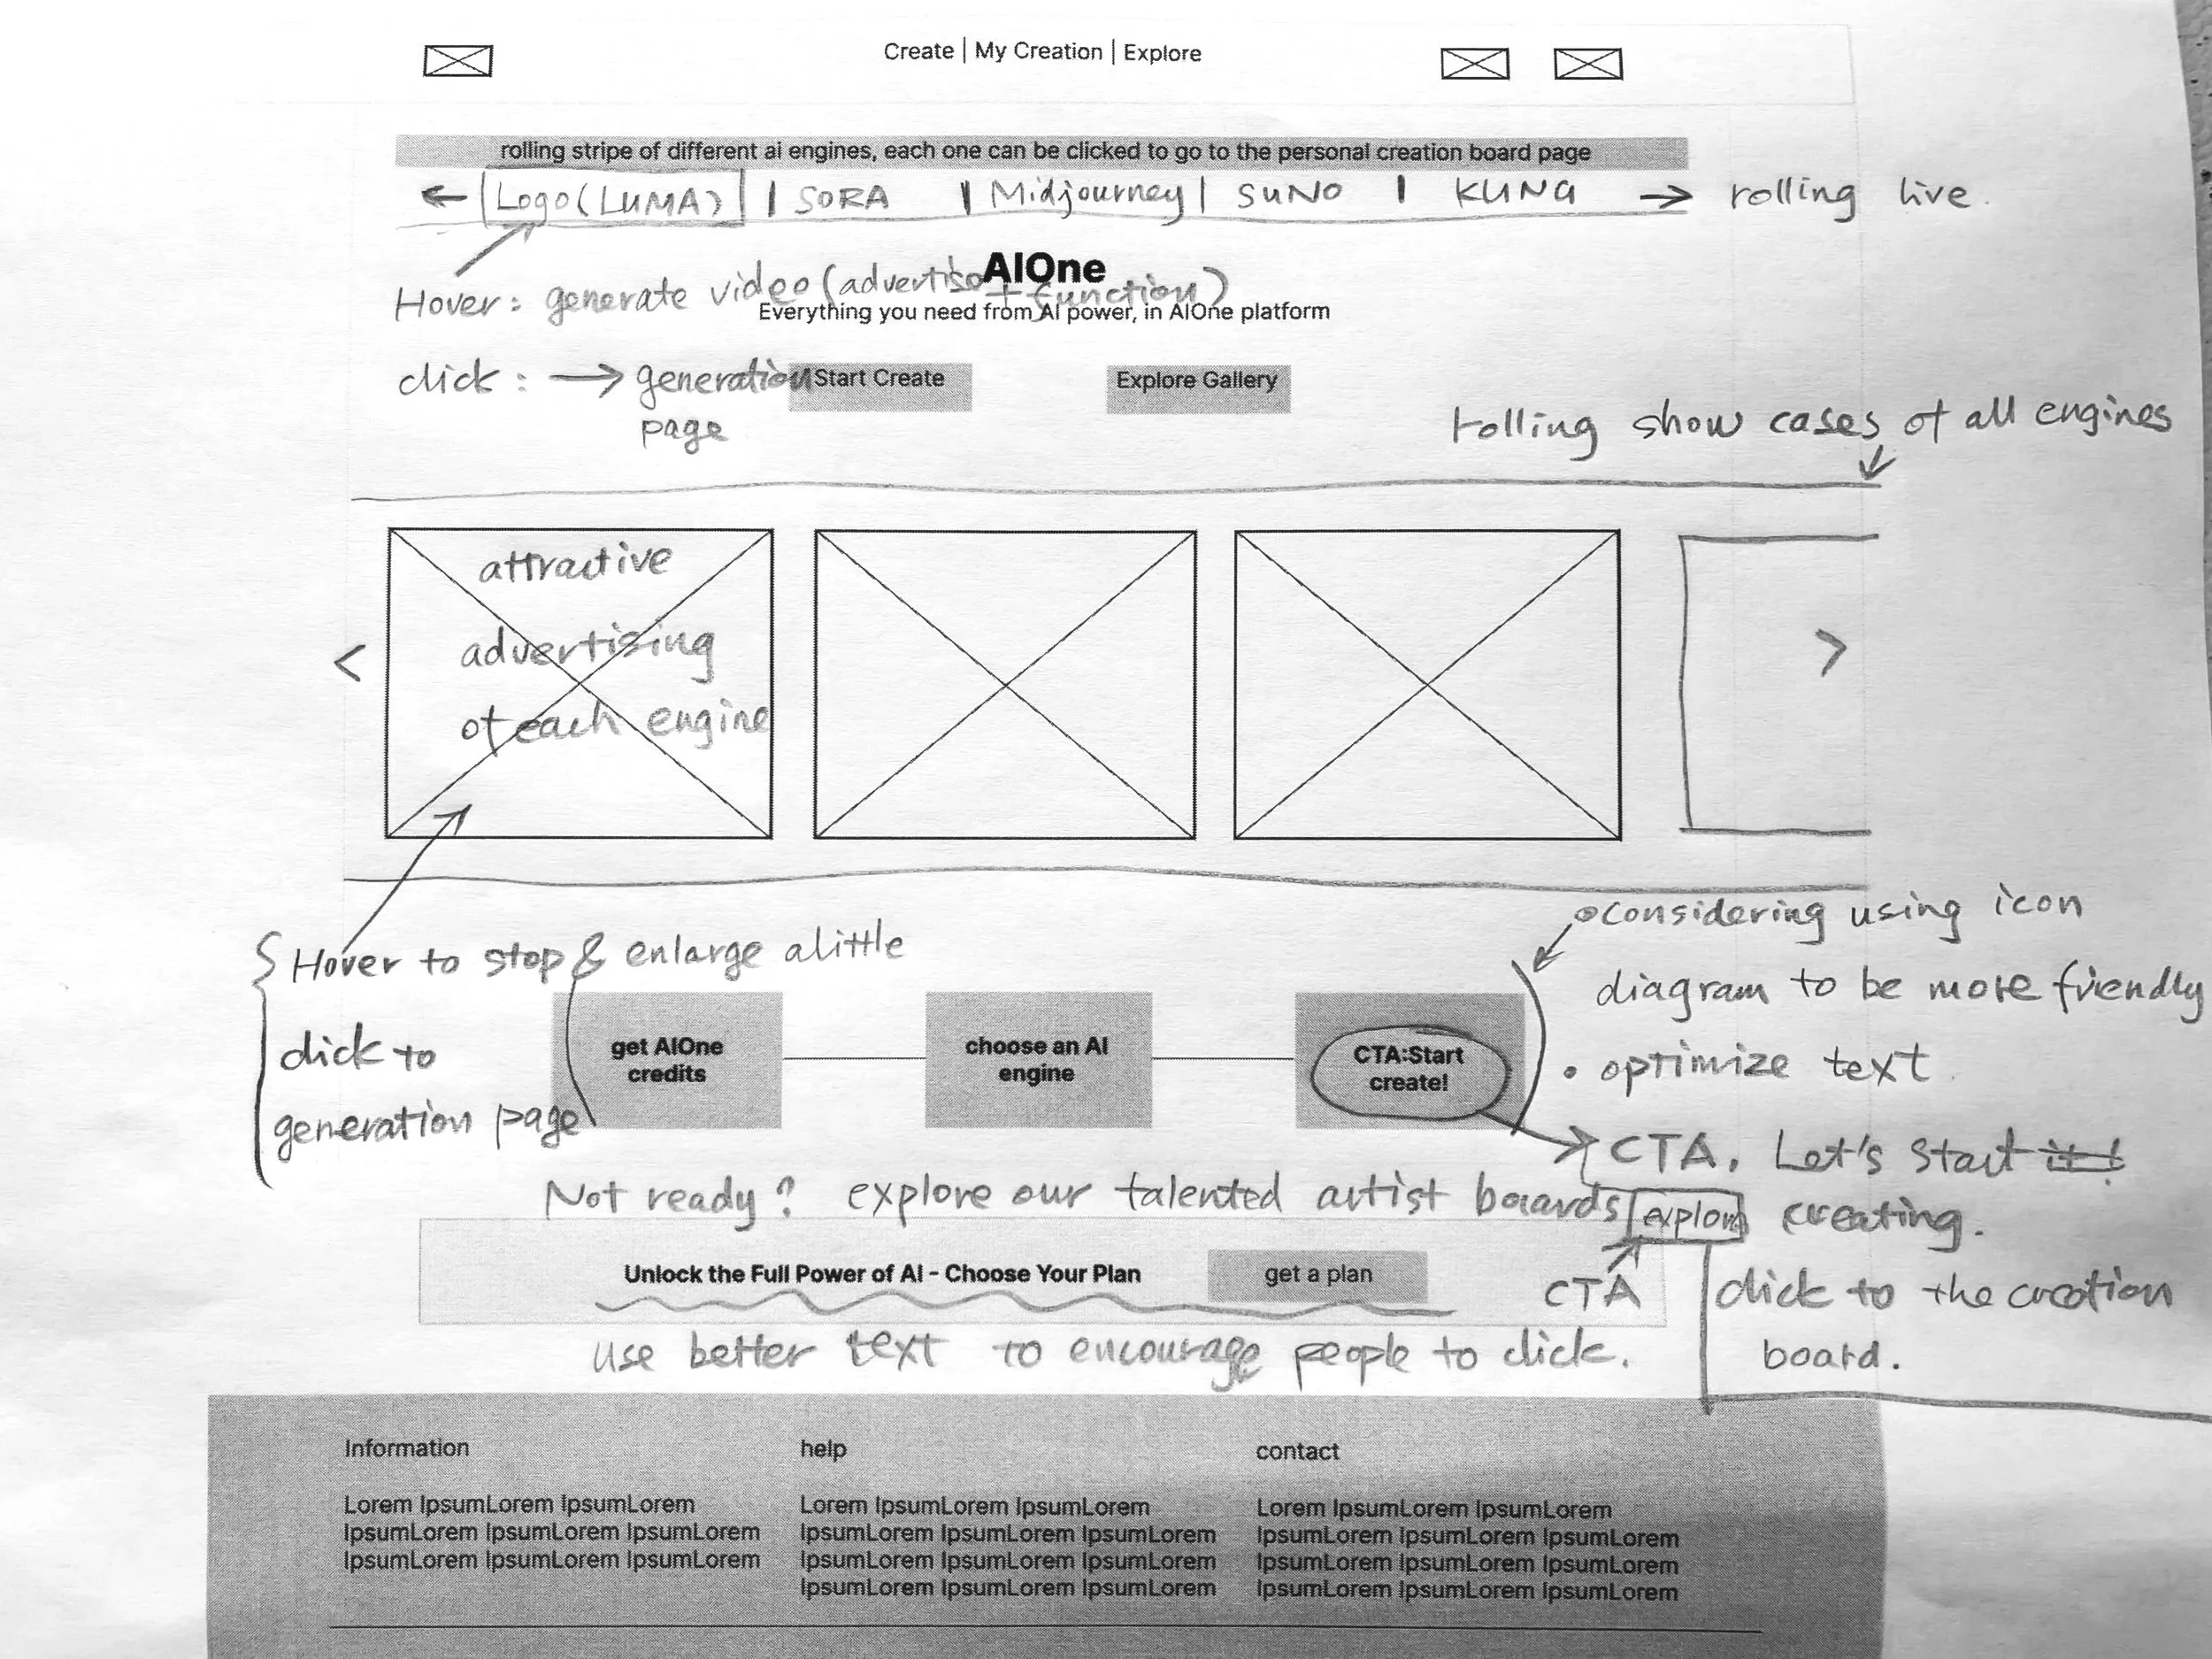 Create | My Creation | Explore
rolling stripe of different ai engines, each one can be clicked to go to the personal creation board page
← Logo(LUMA) | SORA | Midjourney | SUNO | KLING → rolling live.
AIOne
Hover: generate video (advertise + function)
Everything you need from AI power, in AIOne platform
click: → generation
page
Start Create
Explore Gallery
rolling show cases of all engines
attractive
advertising
of each engine
<
>
Hover to stop & enlarge alittle
click to
generation page
considering using icon
diagram to be more friendly
• optimize text
get AIOne
credits
choose an AI
engine
CTA:Start
create!
CTA. Let's start it!
creating.
Not ready? explore our talented artist boards explore
CTA
click to the creation
board.
Unlock the Full Power of AI - Choose Your Plan
get a plan
use better text to encourage people to click.
Information
Lorem IpsumLorem IpsumLorem
IpsumLorem IpsumLorem IpsumLorem
IpsumLorem IpsumLorem IpsumLorem
help
Lorem IpsumLorem IpsumLorem
IpsumLorem IpsumLorem IpsumLorem
IpsumLorem IpsumLorem IpsumLorem
IpsumLorem IpsumLorem IpsumLorem
contact
Lorem IpsumLorem IpsumLorem
IpsumLorem IpsumLorem IpsumLorem
IpsumLorem IpsumLorem IpsumLorem
IpsumLorem IpsumLorem IpsumLorem